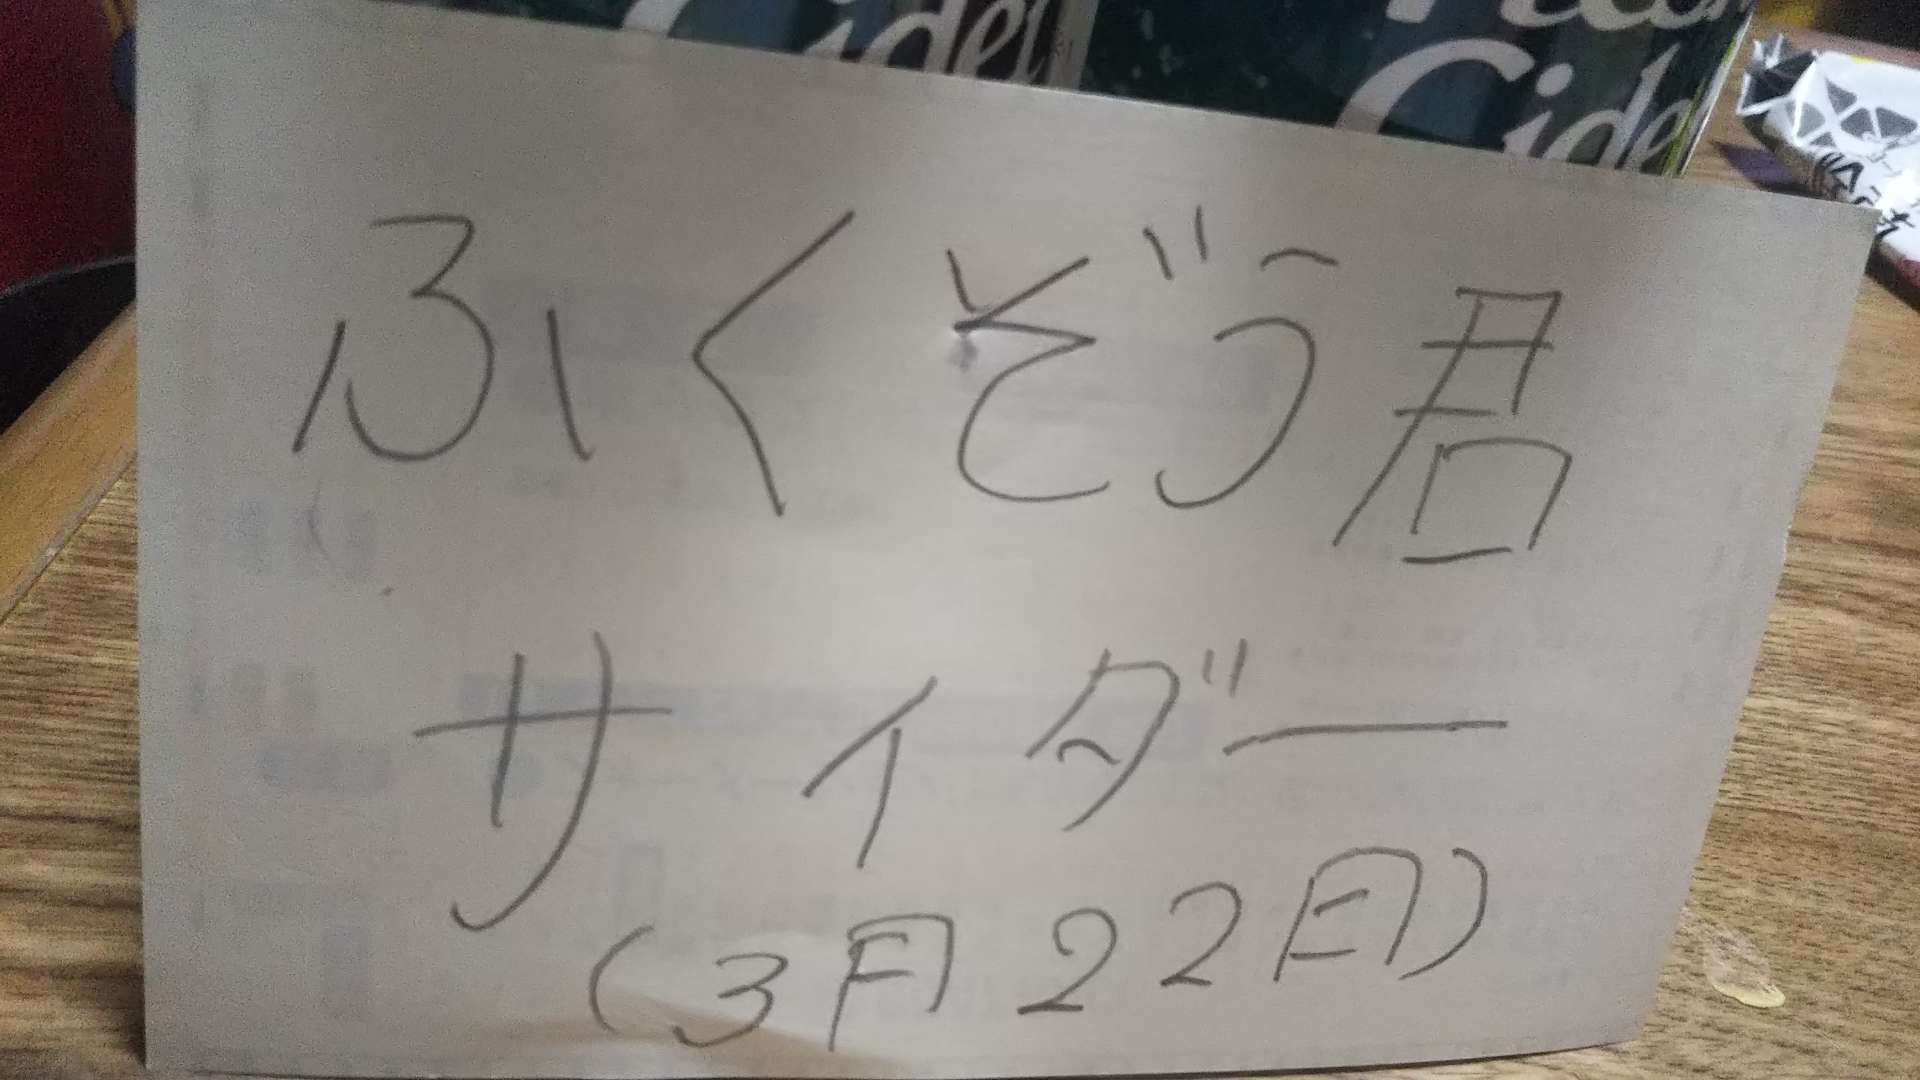 Cider
Cide
ふくぞう君
サイダー
(3月22日)